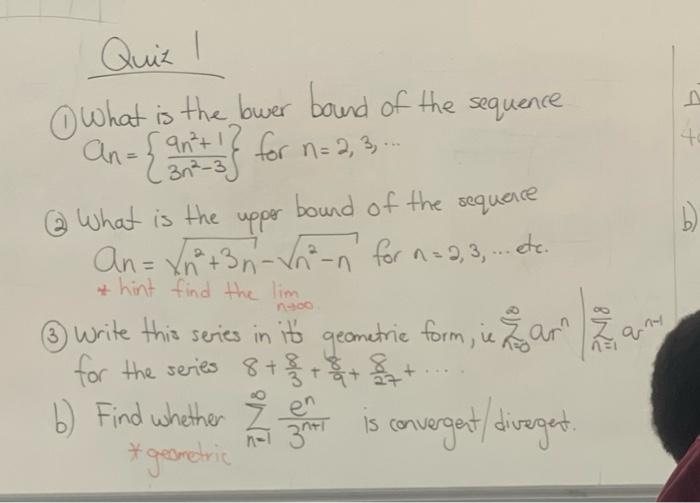 Quiz 1
① What is the lower bound of the sequence
an = {9n²+1 / 3n²-3} for n = 2, 3, ...
② What is the upper bound of the sequence
an = √n²+3n - √n²-n for n = 2, 3, ... etc.
* hint find the lim n→∞.
③ Write this series in it's geometric form, ie ∞Σn=0 arⁿ | ∞Σn=1 arⁿ⁻¹
for the series 8 + 8/3 + 8/9 + 8/27 + ....
b) Find whether ∞Σn=1 eⁿ/3ⁿ⁺¹ is convergent/divergent.
* geometric
b)